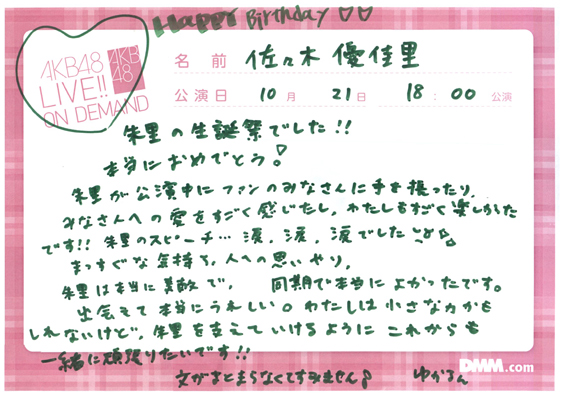 Happy Birthday ♡♡
AKB48
LIVE!!
ON DEMAND
AKB
48
名前 佐々木 優佳里
公演日 10月 21日 18:00 公演
朱里の生誕祭でした!!
本当におめでとう!
朱里が公演中にファンのみなさんに手を振ったり、
みなさんへの愛をすごく感じたし、わたしもすごく楽しかった
です!! 朱里のスピーチ… 涙、涙、涙でした
まっすぐな気持ち、人への思いやり、
朱里は本当に素敵で、 同期で本当によかったです。
出会えて本当にうれしい。わたしは小さな力かも
しれないけど、朱里を支えていけるように これからも
一緒に頑張りたいです!!
文がまとまらなくてすみません
ゆかるん
DMM.com